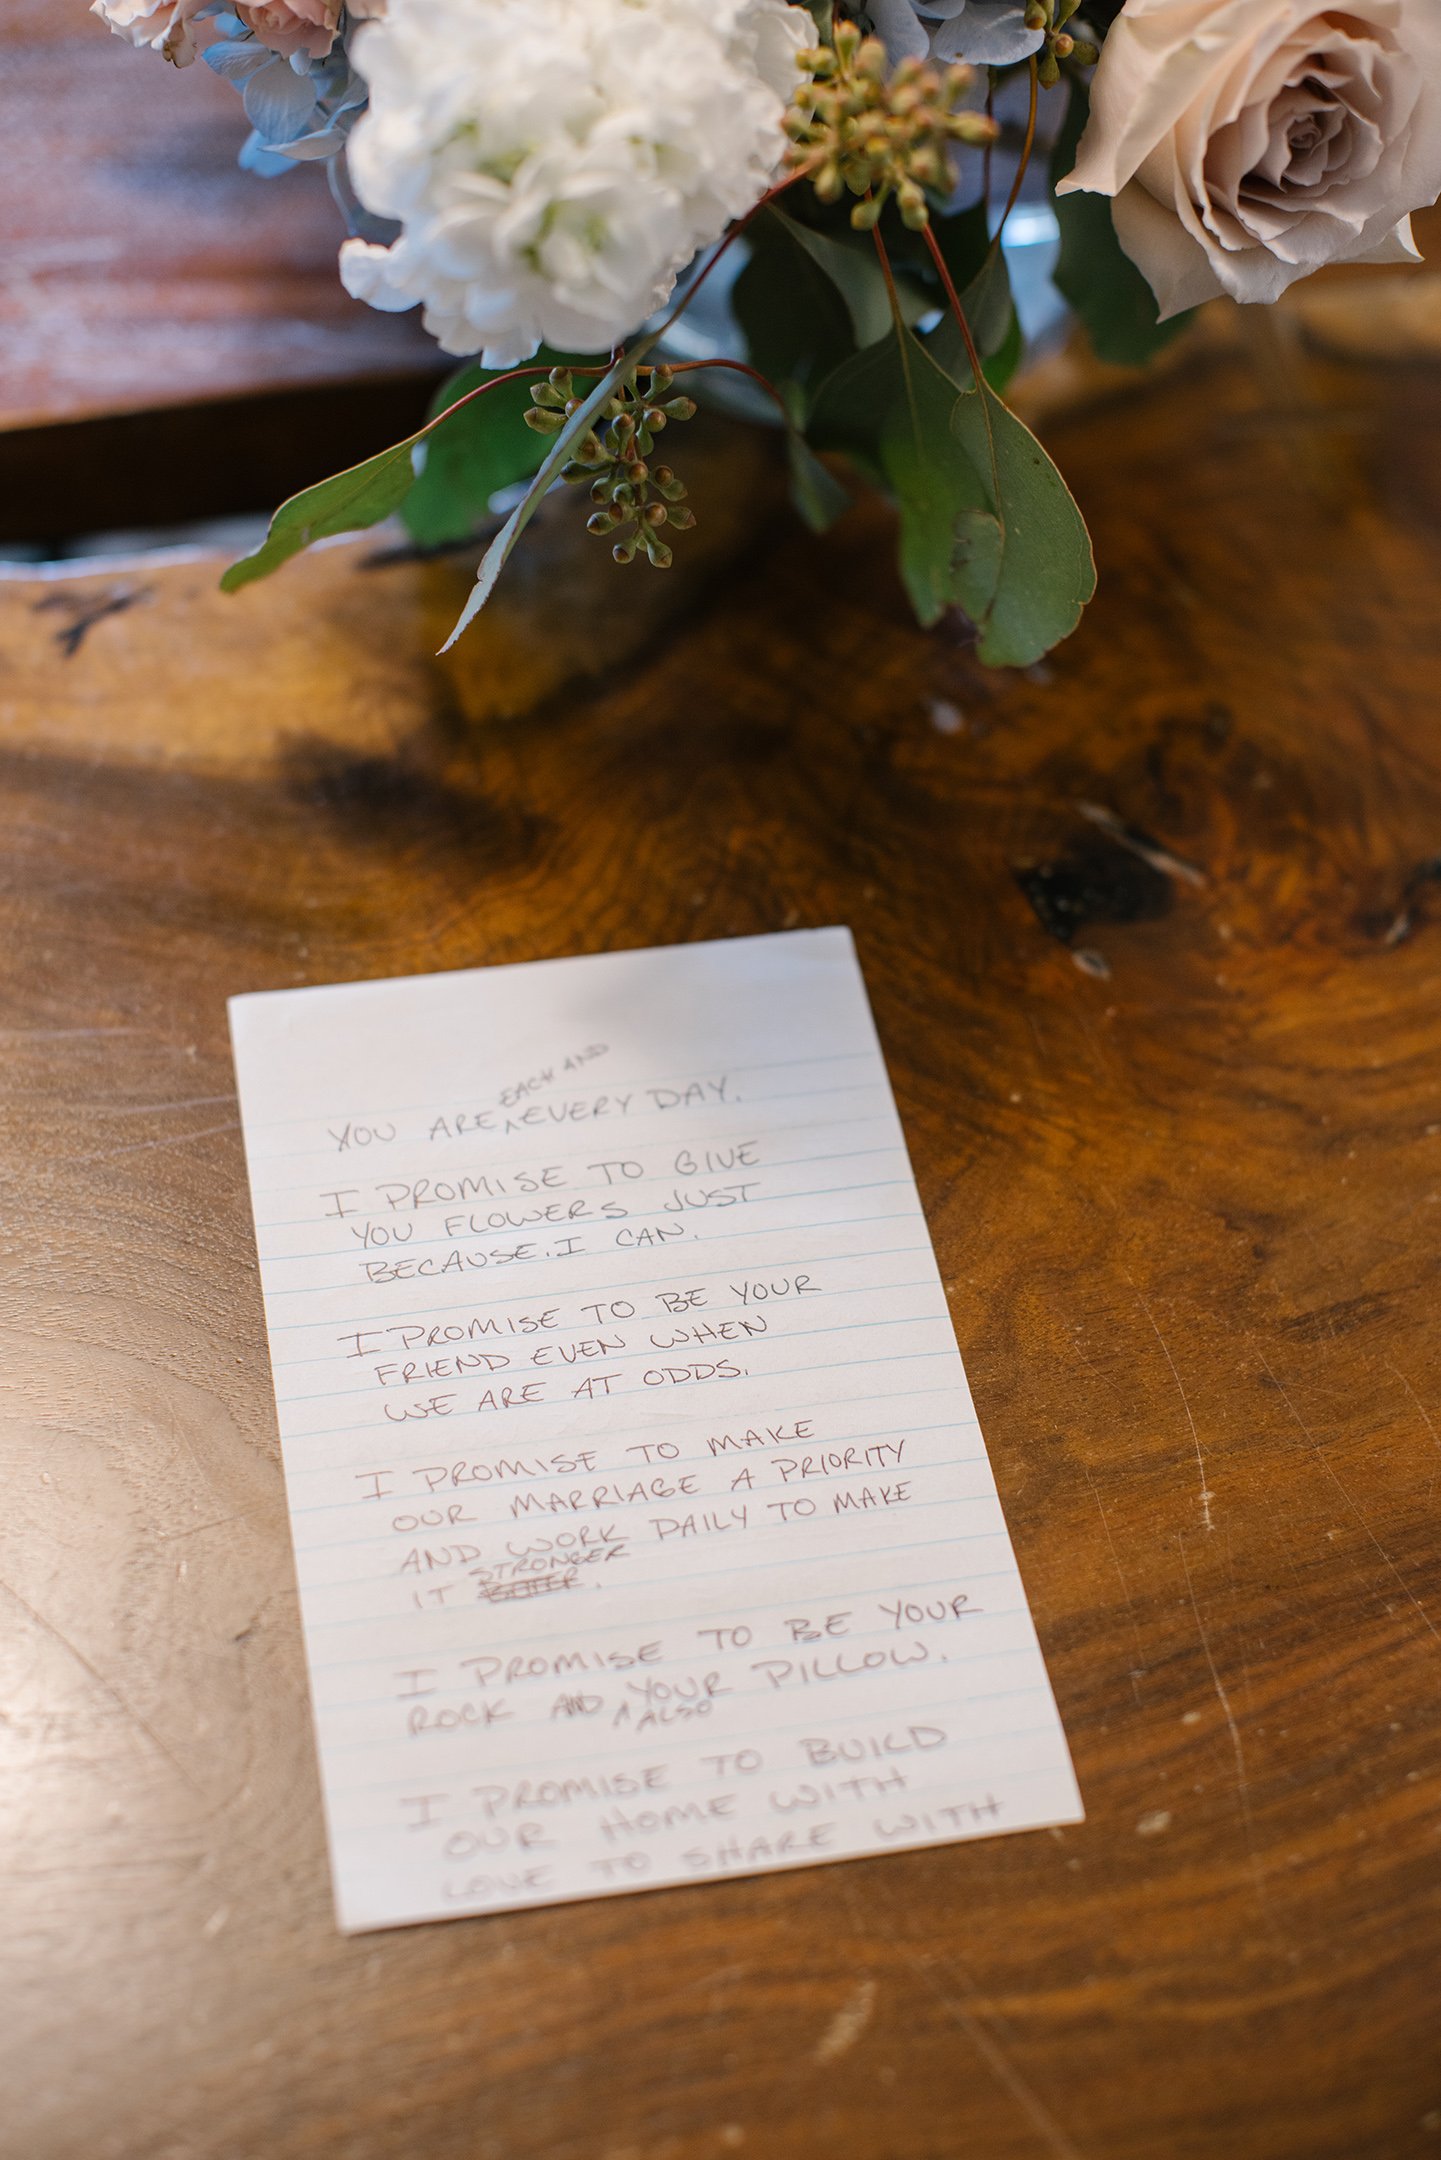 EACH AND
YOU ARE ^ EVERY DAY.
I PROMISE TO GIVE
YOU FLOWERS JUST
BECAUSE. I CAN.
I PROMISE TO BE YOUR
FRIEND EVEN WHEN
WE ARE AT ODDS.
I PROMISE TO MAKE
OUR MARRIAGE A PRIORITY
AND WORK DAILY TO MAKE
STRONGER
IT BETTER.
I PROMISE TO BE YOUR
ROCK AND ^ YOUR PILLOW.
ALSO
I PROMISE TO BUILD
OUR HOME WITH
LOVE TO SHARE WITH